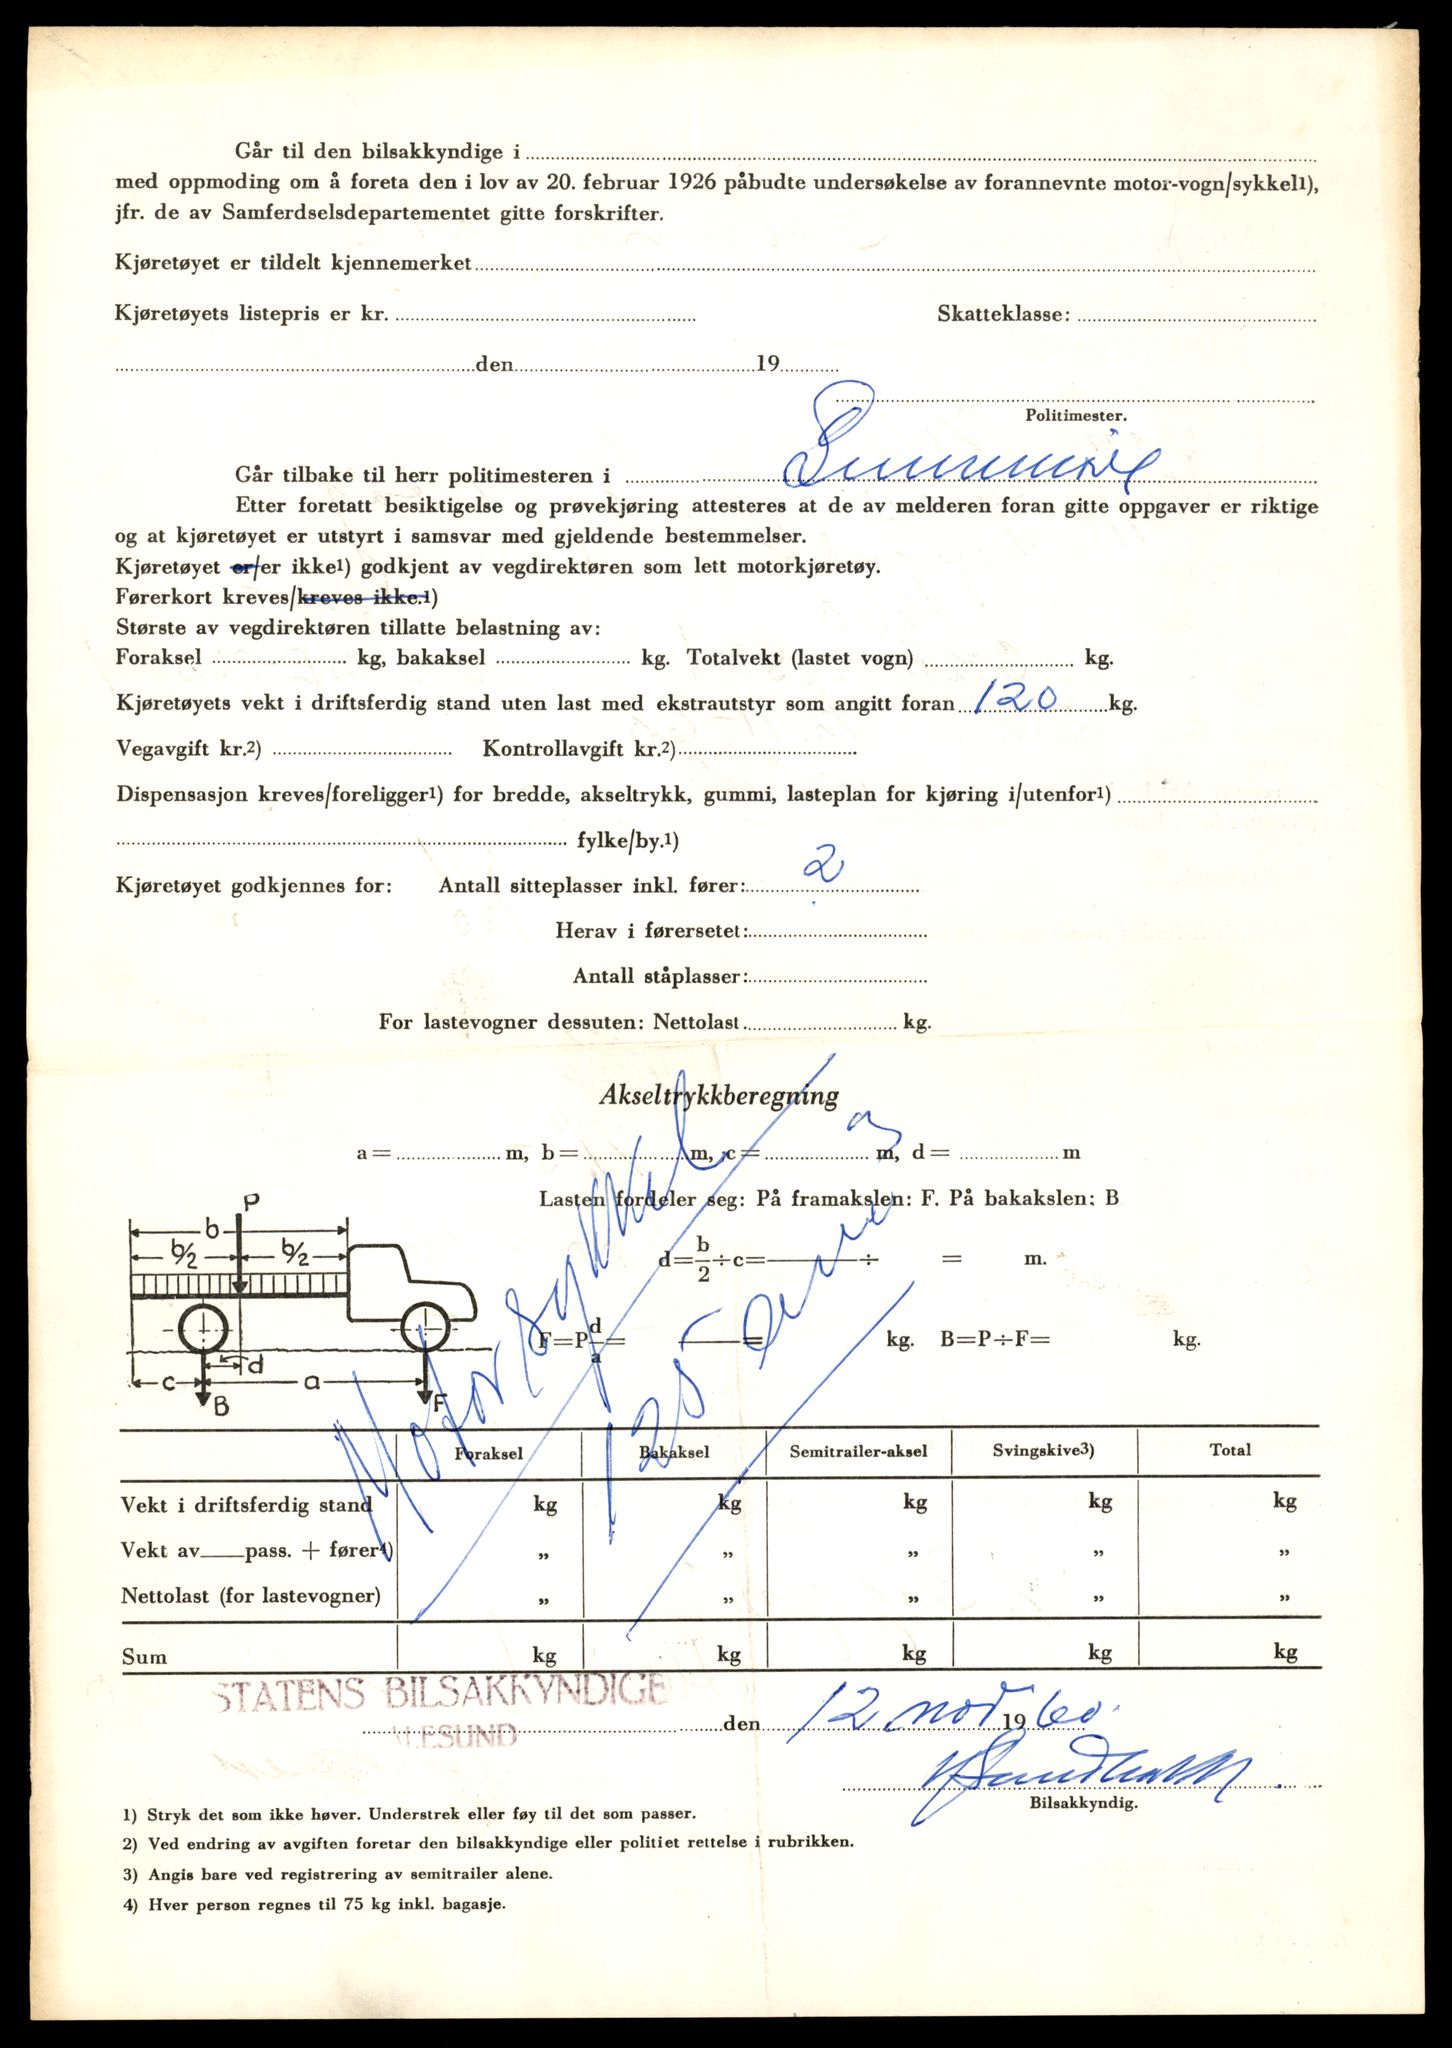 Går til den bilsakkyndige i
med oppmoding om å foreta den i lov av 20. februar 1926 påbudte undersøkelse av forannevnte motor-vogn/sykkel1),
jfr. de av Samferdselsdepartementet gitte forskrifter.
Kjøretøyet er tildelt kjennemerket
Kjøretøyets listepris er kr. Skatteklasse:
den 19
Politimester.
Går tilbake til herr politimesteren i
Etter foretatt besiktigelse og prøvekjøring attesteres at de av melderen foran gitte oppgaver er riktige
og at kjøretøyet er utstyrt i samsvar med gjeldende bestemmelser.
Kjøretøyet er/er ikke1) godkjent av vegdirektøren som lett motorkjøretøy.
Førerkort kreves/kreves ikke.1)
Største av vegdirektøren tillatte belastning av:
Foraksel kg, bakaksel kg. Totalvekt (lastet vogn) kg.
Kjøretøyets vekt i driftsferdig stand uten last med ekstrautstyr som angitt foran 120 kg.
Vegavgift kr.2) Kontrollavgift kr.2)
Dispensasjon kreves/foreligger1) for bredde, akseltrykk, gummi, lasteplan for kjøring i/utenfor1)
fylke/by.1)
Kjøretøyet godkjennes for: Antall sitteplasser inkl. fører: 2
Herav i førersetet:
Antall ståplasser:
For lastevogner dessuten: Nettolast kg.
Akseltrykkberegning
a = m, b = m, c = m, d = m
Lasten fordeler seg: På framakslen: F. På bakakslen: B
d=b/2÷c= ÷ = m.
F=P d/a= = kg. B=P÷F= kg.
P
b
b/2 b/2
d
c a
B F
Motorsykkel
125
Foraksel Bakaksel Semitrailer-aksel Svingskive3) Total
Vekt i driftsferdig stand kg kg kg kg kg
Vekt av pass. + fører4) „ „ „ „ „
Nettolast (for lastevogner) „ „ „ „ „
Sum kg kg kg kg kg
STATENS BILSAKKYNDIGE
ÅLESUND
den 12 nov 1960.
Bilsakkyndig.
1) Stryk det som ikke høver. Understrek eller føy til det som passer.
2) Ved endring av avgiften foretar den bilsakkyndige eller politiet rettelse i rubrikken.
3) Angis bare ved registrering av semitrailer alene.
4) Hver person regnes til 75 kg inkl. bagasje.